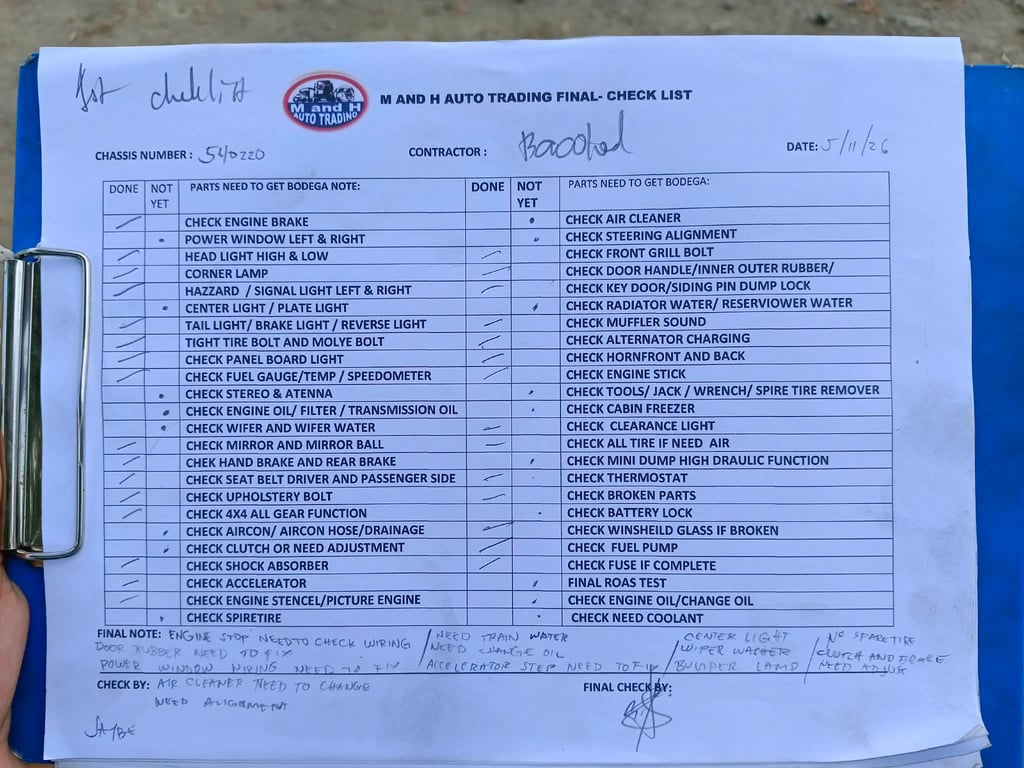 1st cheklist
M and H
AUTO TRADING
M AND H AUTO TRADING FINAL- CHECK LIST
CHASSIS NUMBER : 540220 CONTRACTOR : DATE: 5/11/26
DONE NOT YET PARTS NEED TO GET BODEGA NOTE: DONE NOT YET PARTS NEED TO GET BODEGA:
CHECK ENGINE BRAKE CHECK AIR CLEANER
POWER WINDOW LEFT & RIGHT CHECK STEERING ALIGNMENT
HEAD LIGHT HIGH & LOW CHECK FRONT GRILL BOLT
CORNER LAMP CHECK DOOR HANDLE/INNER OUTER RUBBER/
HAZZARD / SIGNAL LIGHT LEFT & RIGHT CHECK KEY DOOR/SIDING PIN DUMP LOCK
CENTER LIGHT / PLATE LIGHT CHECK RADIATOR WATER/ RESERVIOWER WATER
TAIL LIGHT/ BRAKE LIGHT / REVERSE LIGHT CHECK MUFFLER SOUND
TIGHT TIRE BOLT AND MOLYE BOLT CHECK ALTERNATOR CHARGING
CHECK PANEL BOARD LIGHT CHECK HORNFRONT AND BACK
CHECK FUEL GAUGE/TEMP / SPEEDOMETER CHECK ENGINE STICK
CHECK STEREO & ATENNA CHECK TOOLS/ JACK / WRENCH/ SPIRE TIRE REMOVER
CHECK ENGINE OIL/ FILTER / TRANSMISSION OIL CHECK CABIN FREEZER
CHECK WIFER AND WIFER WATER CHECK CLEARANCE LIGHT
CHECK MIRROR AND MIRROR BALL CHECK ALL TIRE IF NEED AIR
CHEK HAND BRAKE AND REAR BRAKE CHECK MINI DUMP HIGH DRAULIC FUNCTION
CHECK SEAT BELT DRIVER AND PASSENGER SIDE CHECK THERMOSTAT
CHECK UPHOLSTERY BOLT CHECK BROKEN PARTS
CHECK 4X4 ALL GEAR FUNCTION CHECK BATTERY LOCK
CHECK AIRCON/ AIRCON HOSE/DRAINAGE CHECK WINSHEILD GLASS IF BROKEN
CHECK CLUTCH OR NEED ADJUSTMENT CHECK FUEL PUMP
CHECK SHOCK ABSORBER CHECK FUSE IF COMPLETE
CHECK ACCELERATOR FINAL ROAS TEST
CHECK ENGINE STENCEL/PICTURE ENGINE CHECK ENGINE OIL/CHANGE OIL
CHECK SPIRETIRE CHECK NEED COOLANT
FINAL NOTE: ENGINE STOP NEED TO CHECK WIRING / NEED TRAIN WATER / CENTER LIGHT / NO SPARE TIRE
DOOR RUBBER NEED TO FIX NEED CHANGE OIL WIPER WASHER CLUTCH AND BRAKE
POWER WINDOW WIRING NEED TO FIX ACCELERATOR STEP NEED TO FIX BUMPER LAMP NEED ADJUST
CHECK BY: AIR CLEANER NEED TO CHANGE FINAL CHECK BY:
NEED ALIGNMENT